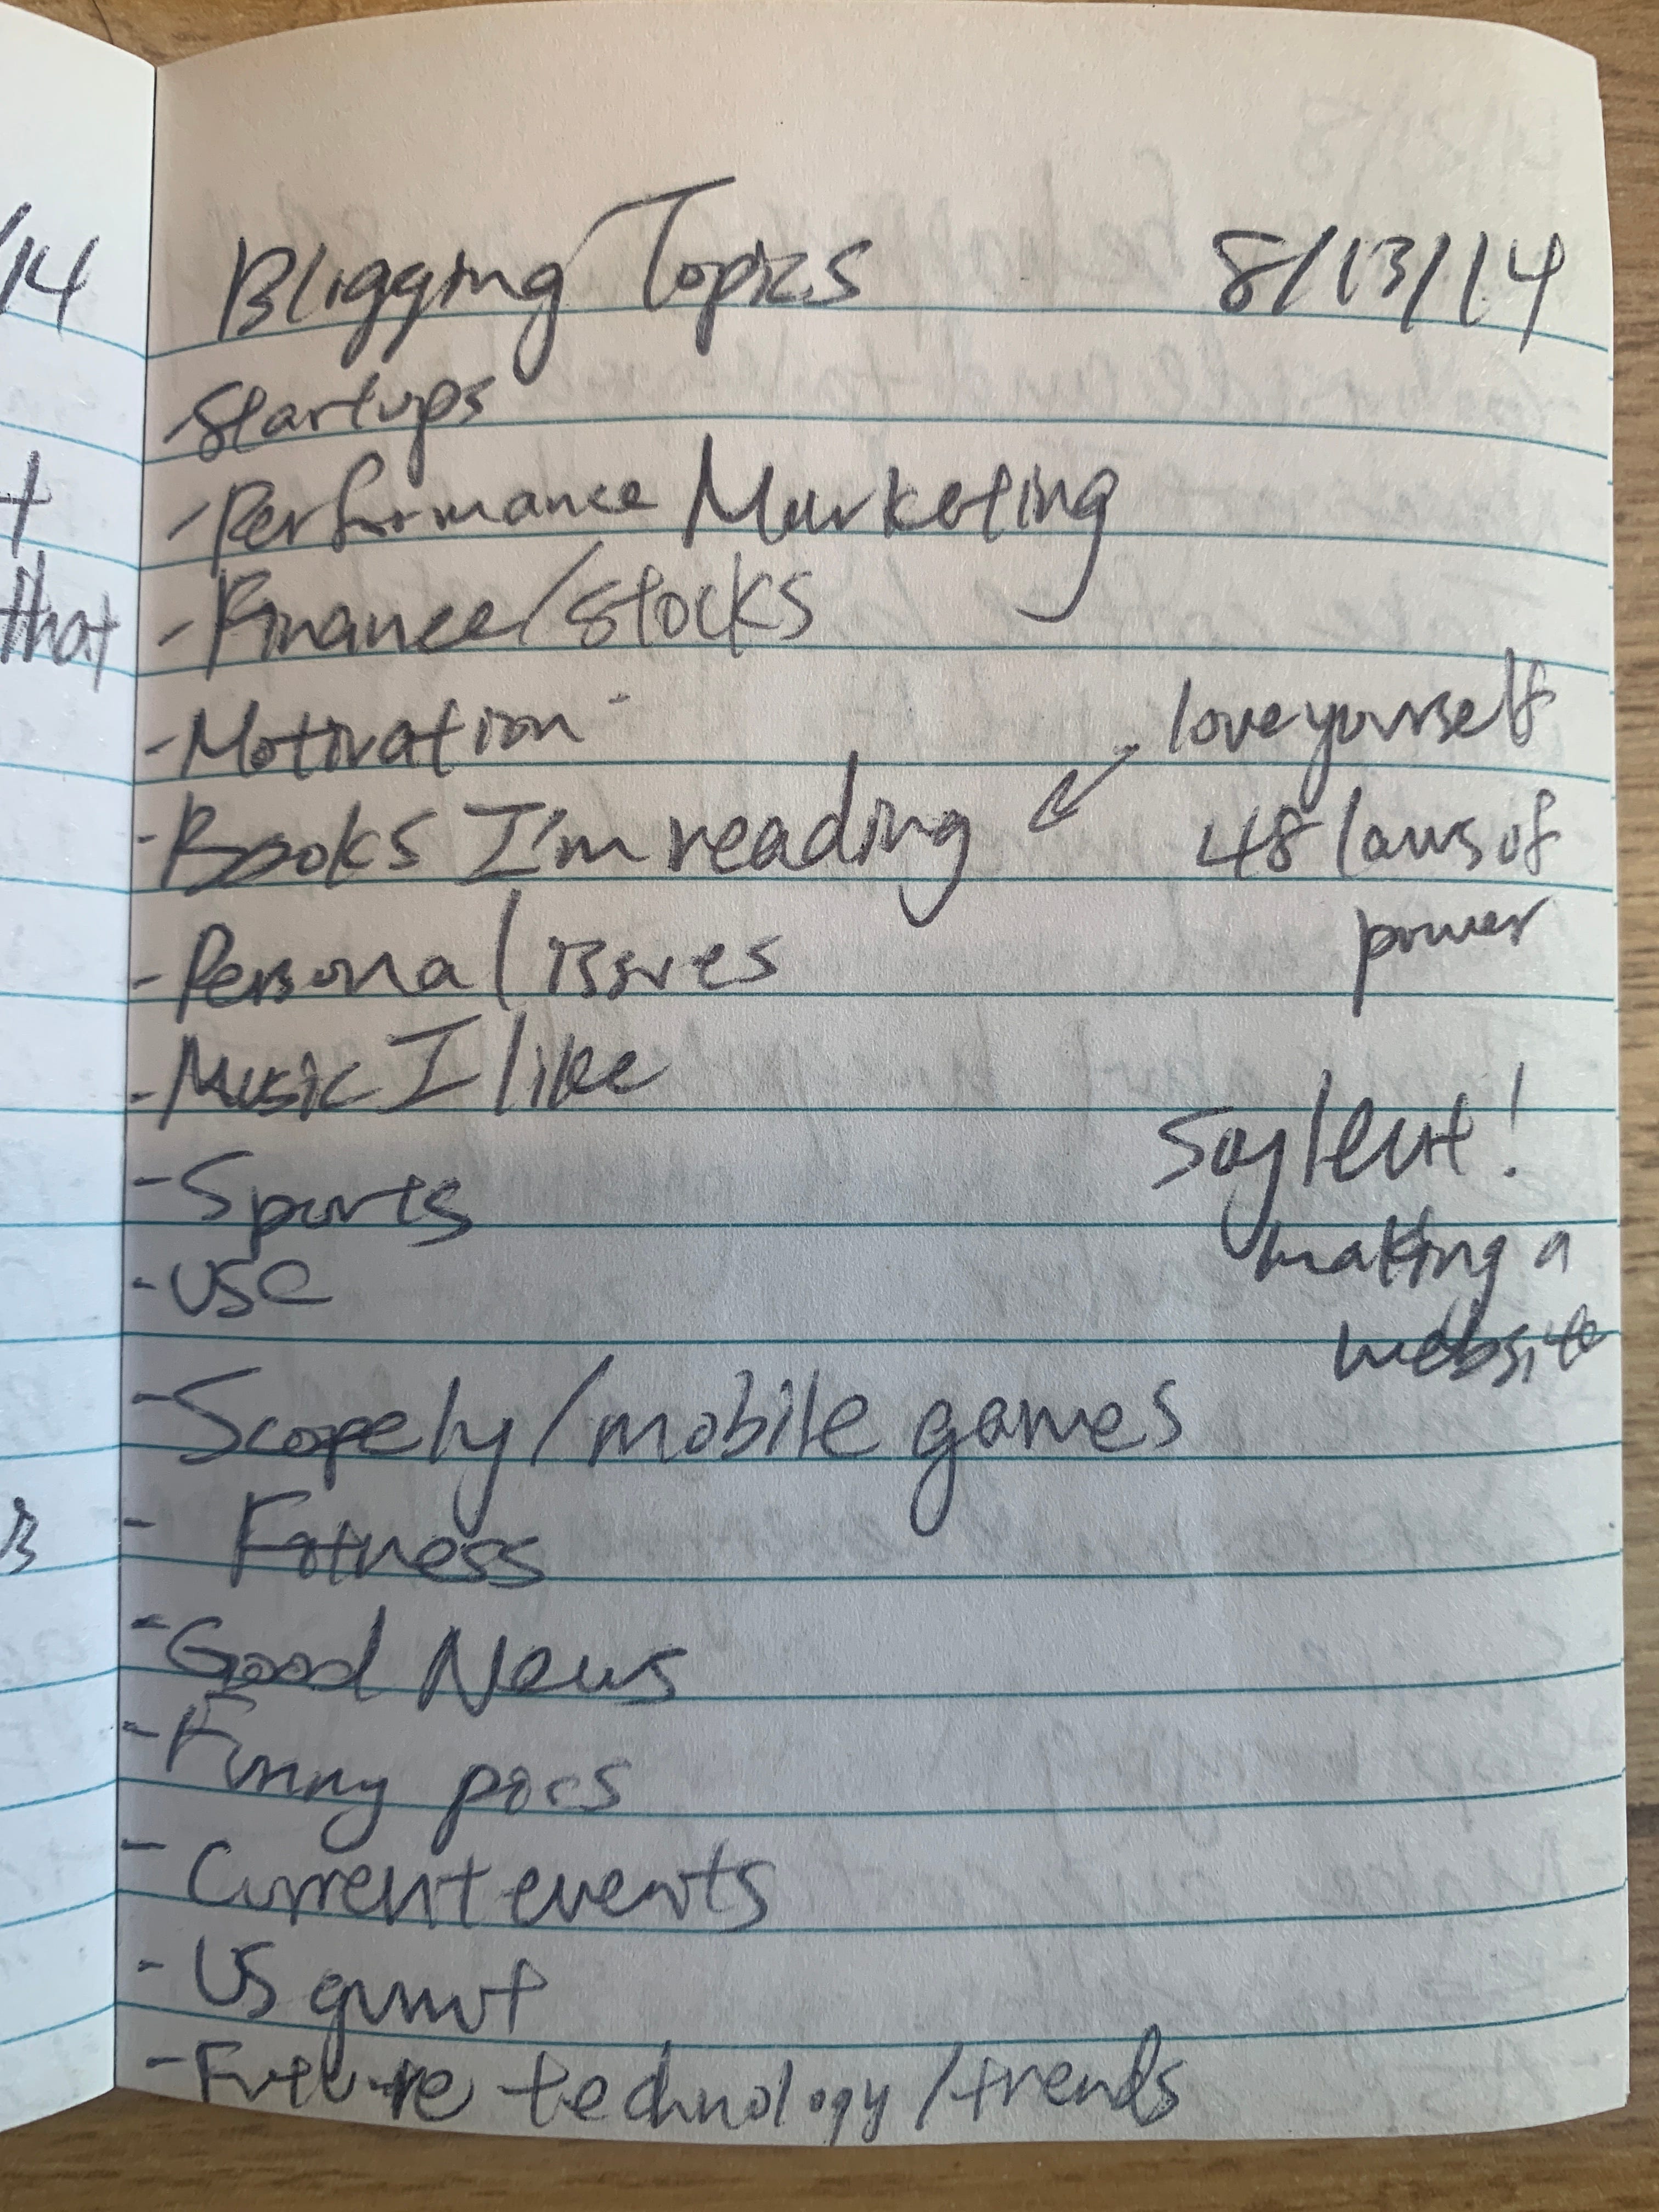 /14
Bligging Topics 8/13/14
- Startups
- Performance Marketing
t
- Finance/stocks
that
- Motivation -
love yourself
- Books I'm reading
48 laws of
power
- Personal issues
- Music I like
Soylent!
- Sports
making a
- USC
website
- Scopely/mobile games
- Fitness
- Good News
- Funny pics
- Current events
- US gvmnt
- Future technology/trends